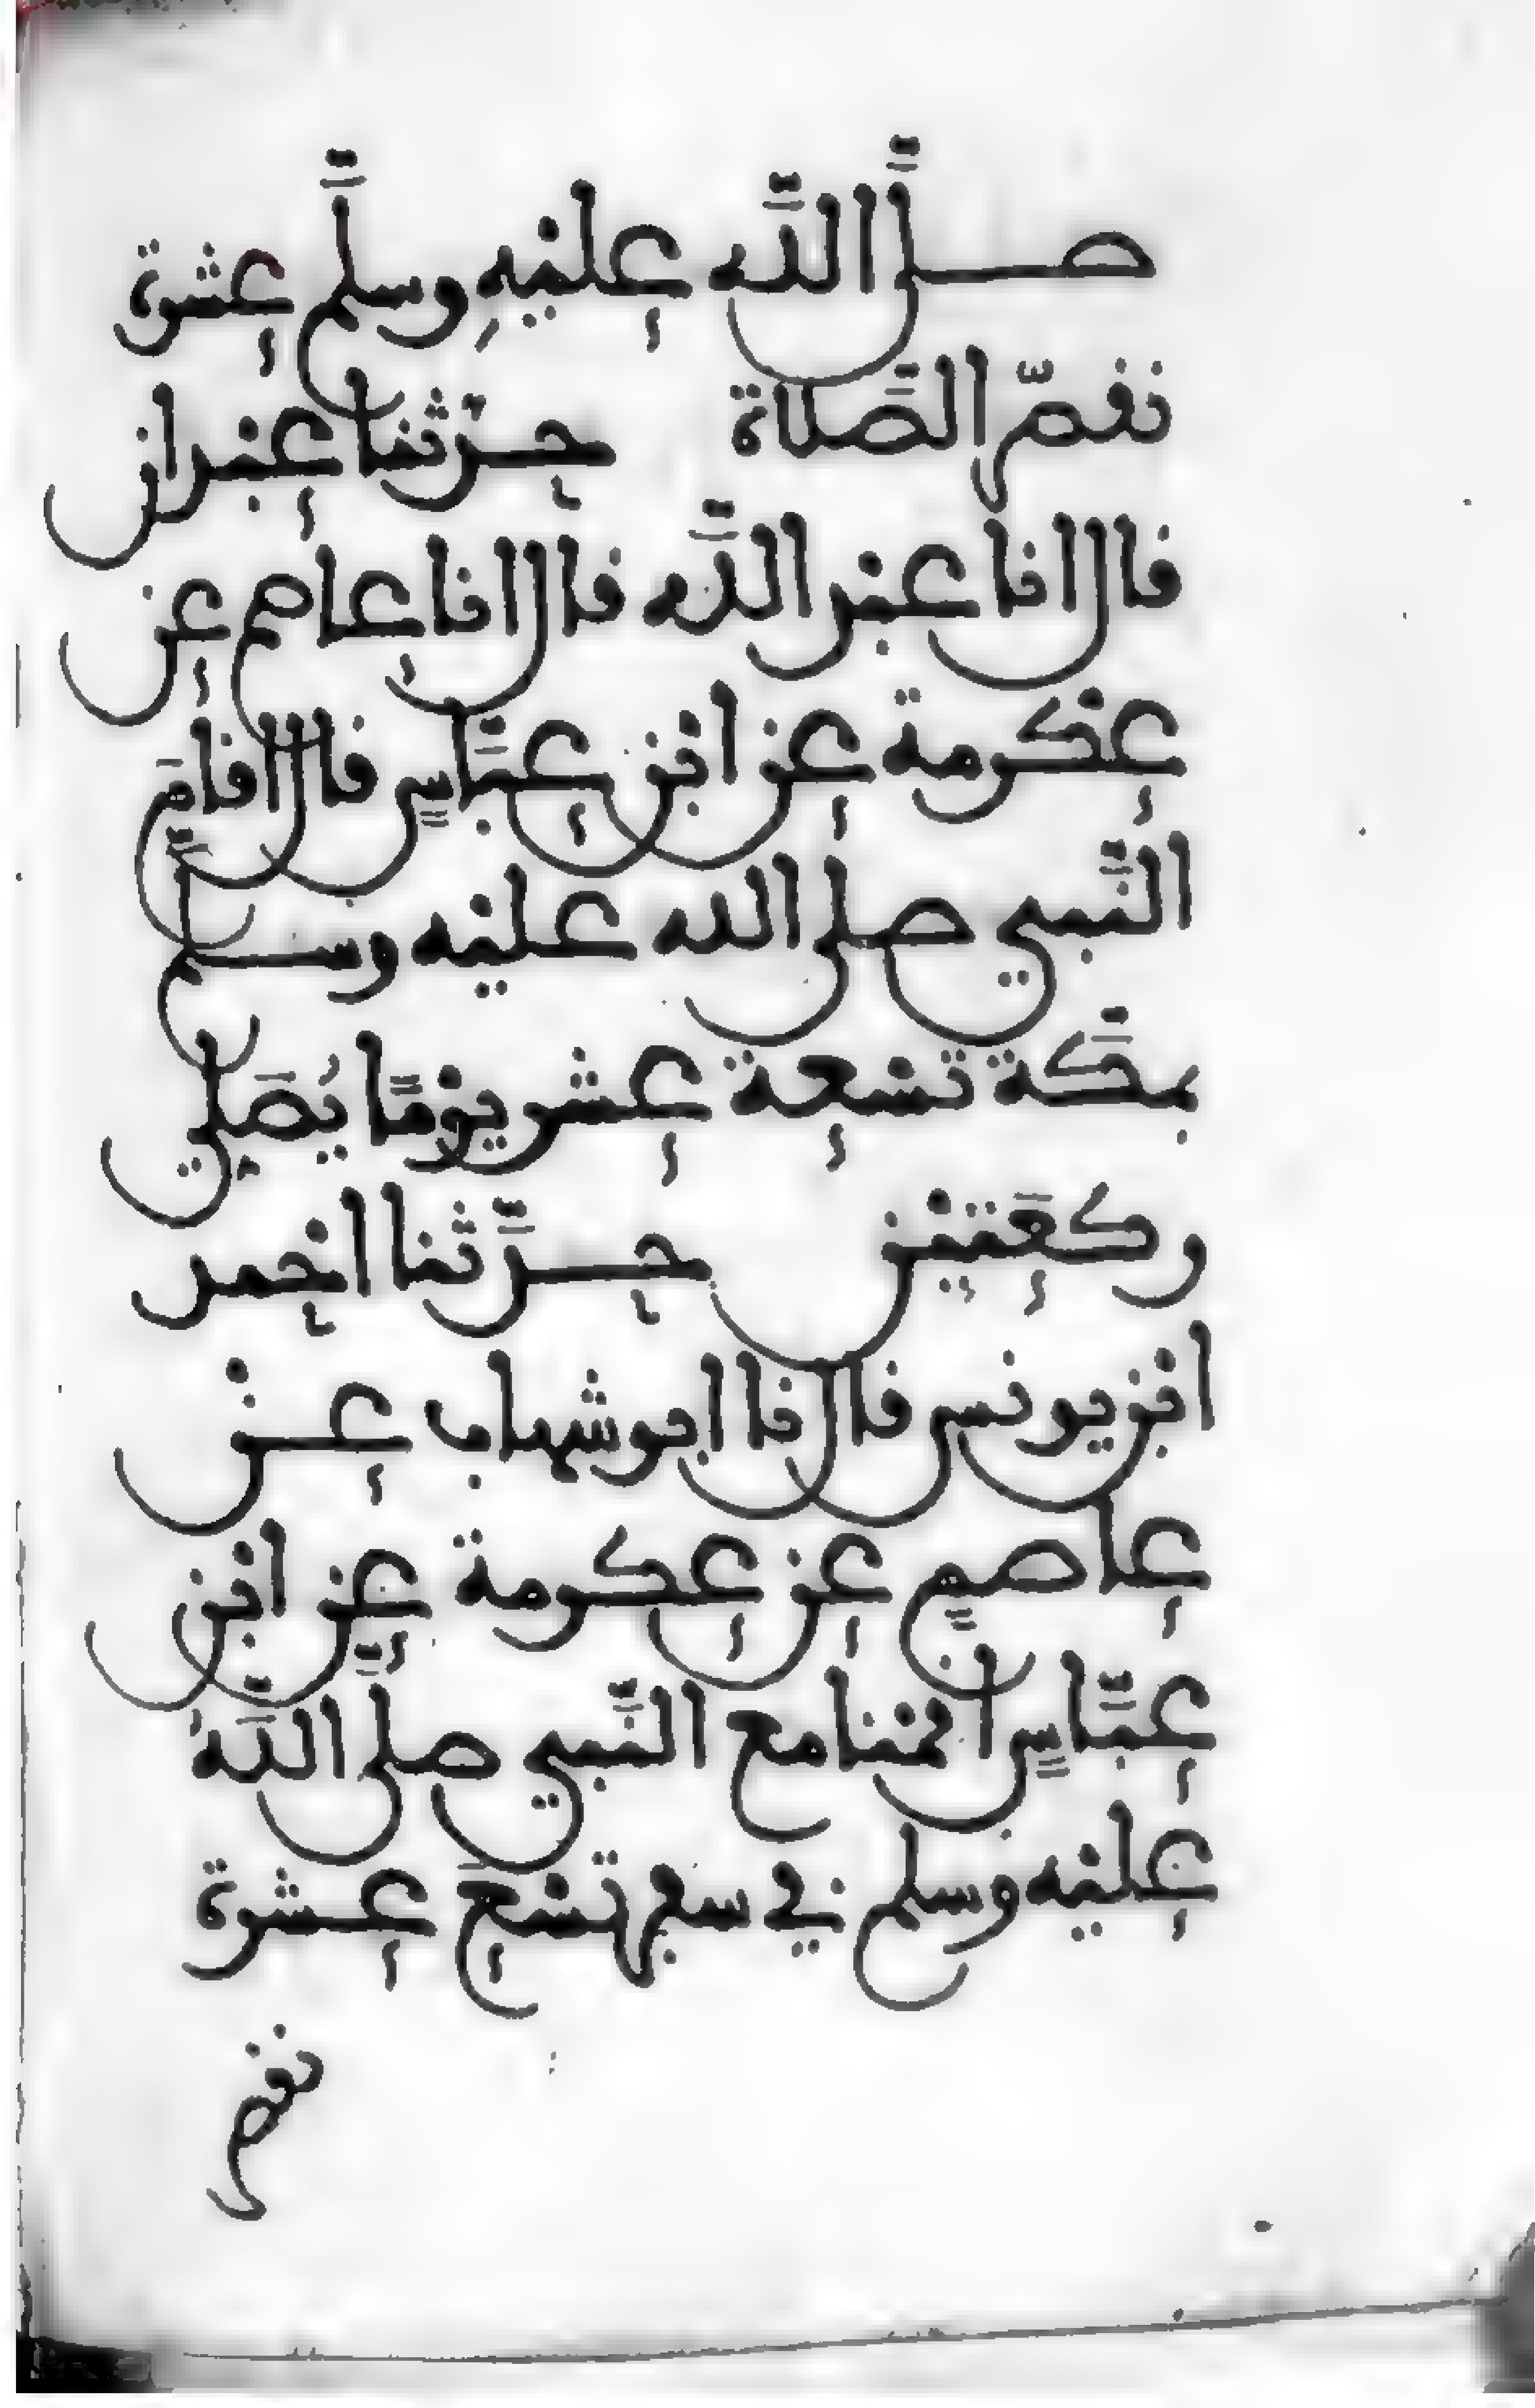 صلَّى اللَّه عليْهِ وسلَّم عشرة
نقصّر الصَّلاة حدْثنا عبدان
قال انا عبد اللَّه قال انا عاصم عن
عكْرمة عن ابْن عبَّاسٍ قال اقامَ
النَّبي صلى الله عليْه وسلَّم
بمكَّة تسْعة عشر يوْمًا يُصَلِّي
ركعَتيْن حدَّثنا احْمد
ابْن يونس قال نا ابو شهاب عنْ
عاصمٍ عن عكرمة عن ابْن
عبَّاسٍ اقمْنا مع النَّبي صلَّى اللَّهُ
عليْه وسلم في سفر تسْعَ عشرة
نقصر